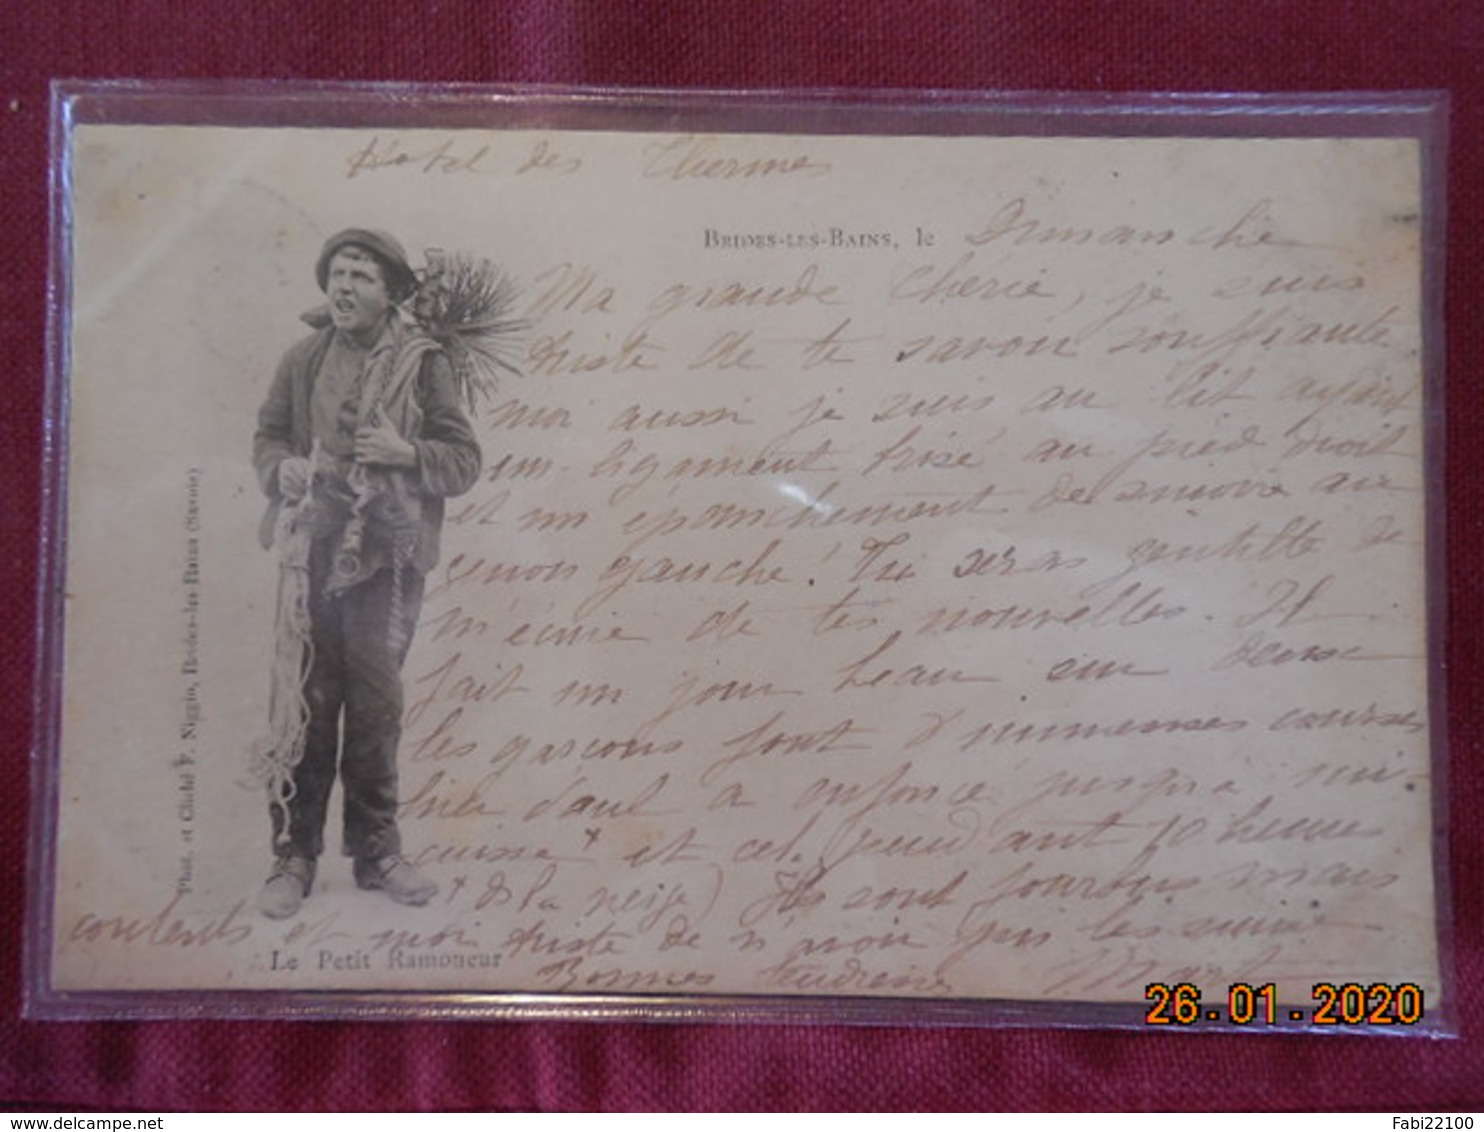 Hotel des Thermes
BRIDES-LES-BAINS, le Dimanche
Ma grande Chérie, je suis
triste de te savoir souffrante
moi aussi je suis au lit ayant
un ligament brisé au pied droit
et un épanchement de sinovie au
genou gauche! Tu seras gentille de
m'écrire de tes nouvelles. Il
fait un jour beau
les garçons font d'immenses courses
hier Paul a enfoncé jusqu'à mi-
cuisse + et cel. pendant 10 heures
+ de la neige) Ils sont fourbus mais
contents et moi triste de n'avoir pu les suivre
Bonnes tendresses
Le Petit Ramoneur
Phot. et Cliché F. Niggio, Brides-les-Bains (Savoie)
26.01.2020
delcampe.net
Fabi22100